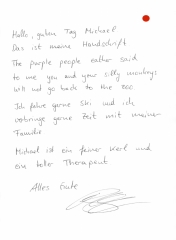 Hallo, guten Tag Michael
Das ist meine Handschrift
The purple people eather said
to me you and your silly monkeys
will not go back to the zoo
Ich fahre gerne Ski und ich
verbringe gerne Zeit mit meiner
Familie
Michael ist ein feiner Kerl und
ein toller Therapeut
Alles Gute